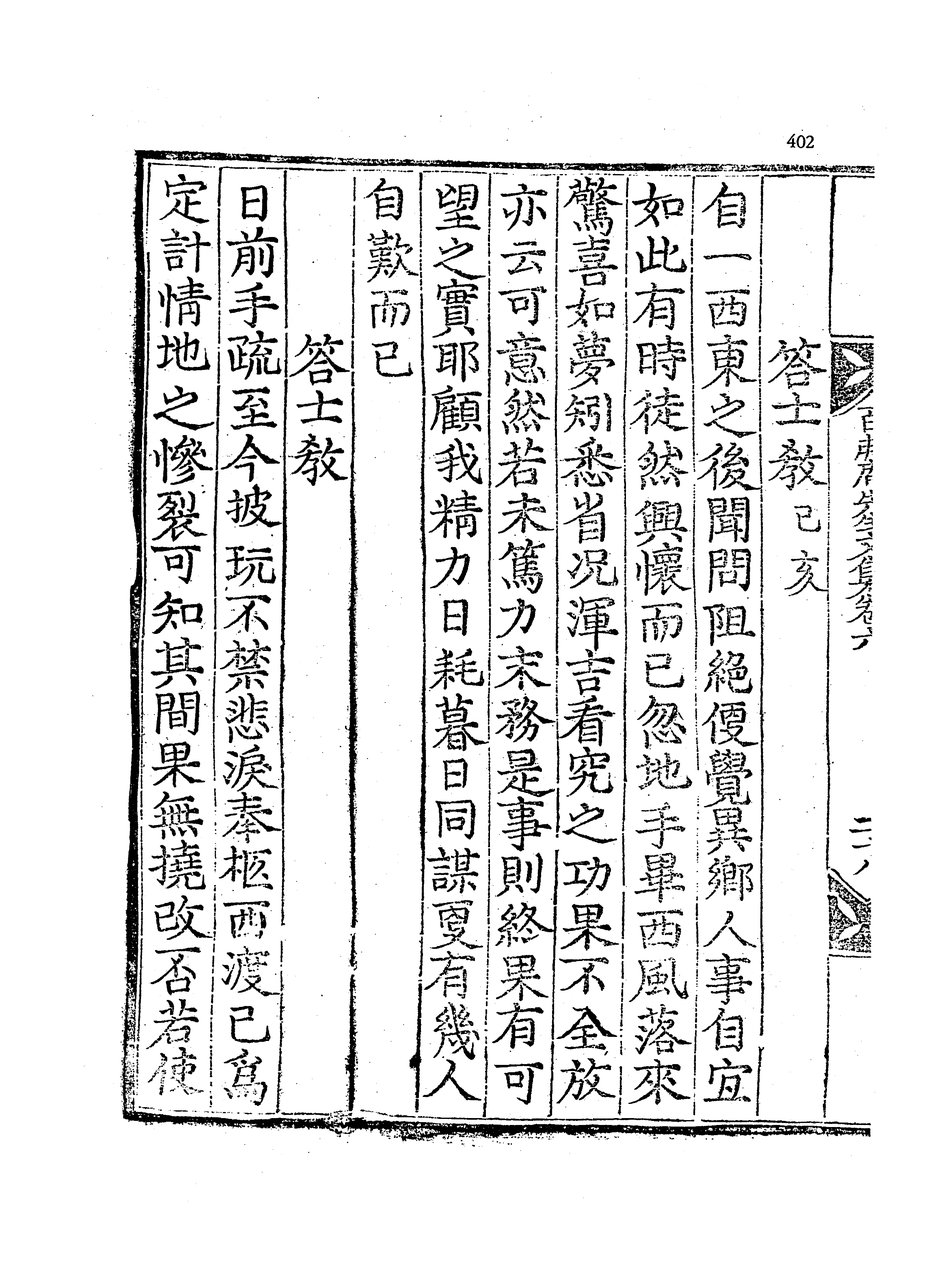 402
答士敎 己亥
自一西東之後聞問阻絶便覺異鄉人事自宜
如此有時徒然興懷而已忽地手畢西風落來
驚喜如夢矧悉省况渾吉看究之功果不全放
亦云可意然若未篤力末務是事則終果有可
望之實耶顧我精力日耗暮日同謀更有幾人
自歎而已
答士敎
日前手疏至今披玩不禁悲淚奉柩西渡已爲
定計情地之慘裂可知其間果無撓改否若使
先生文集卷六
二十八